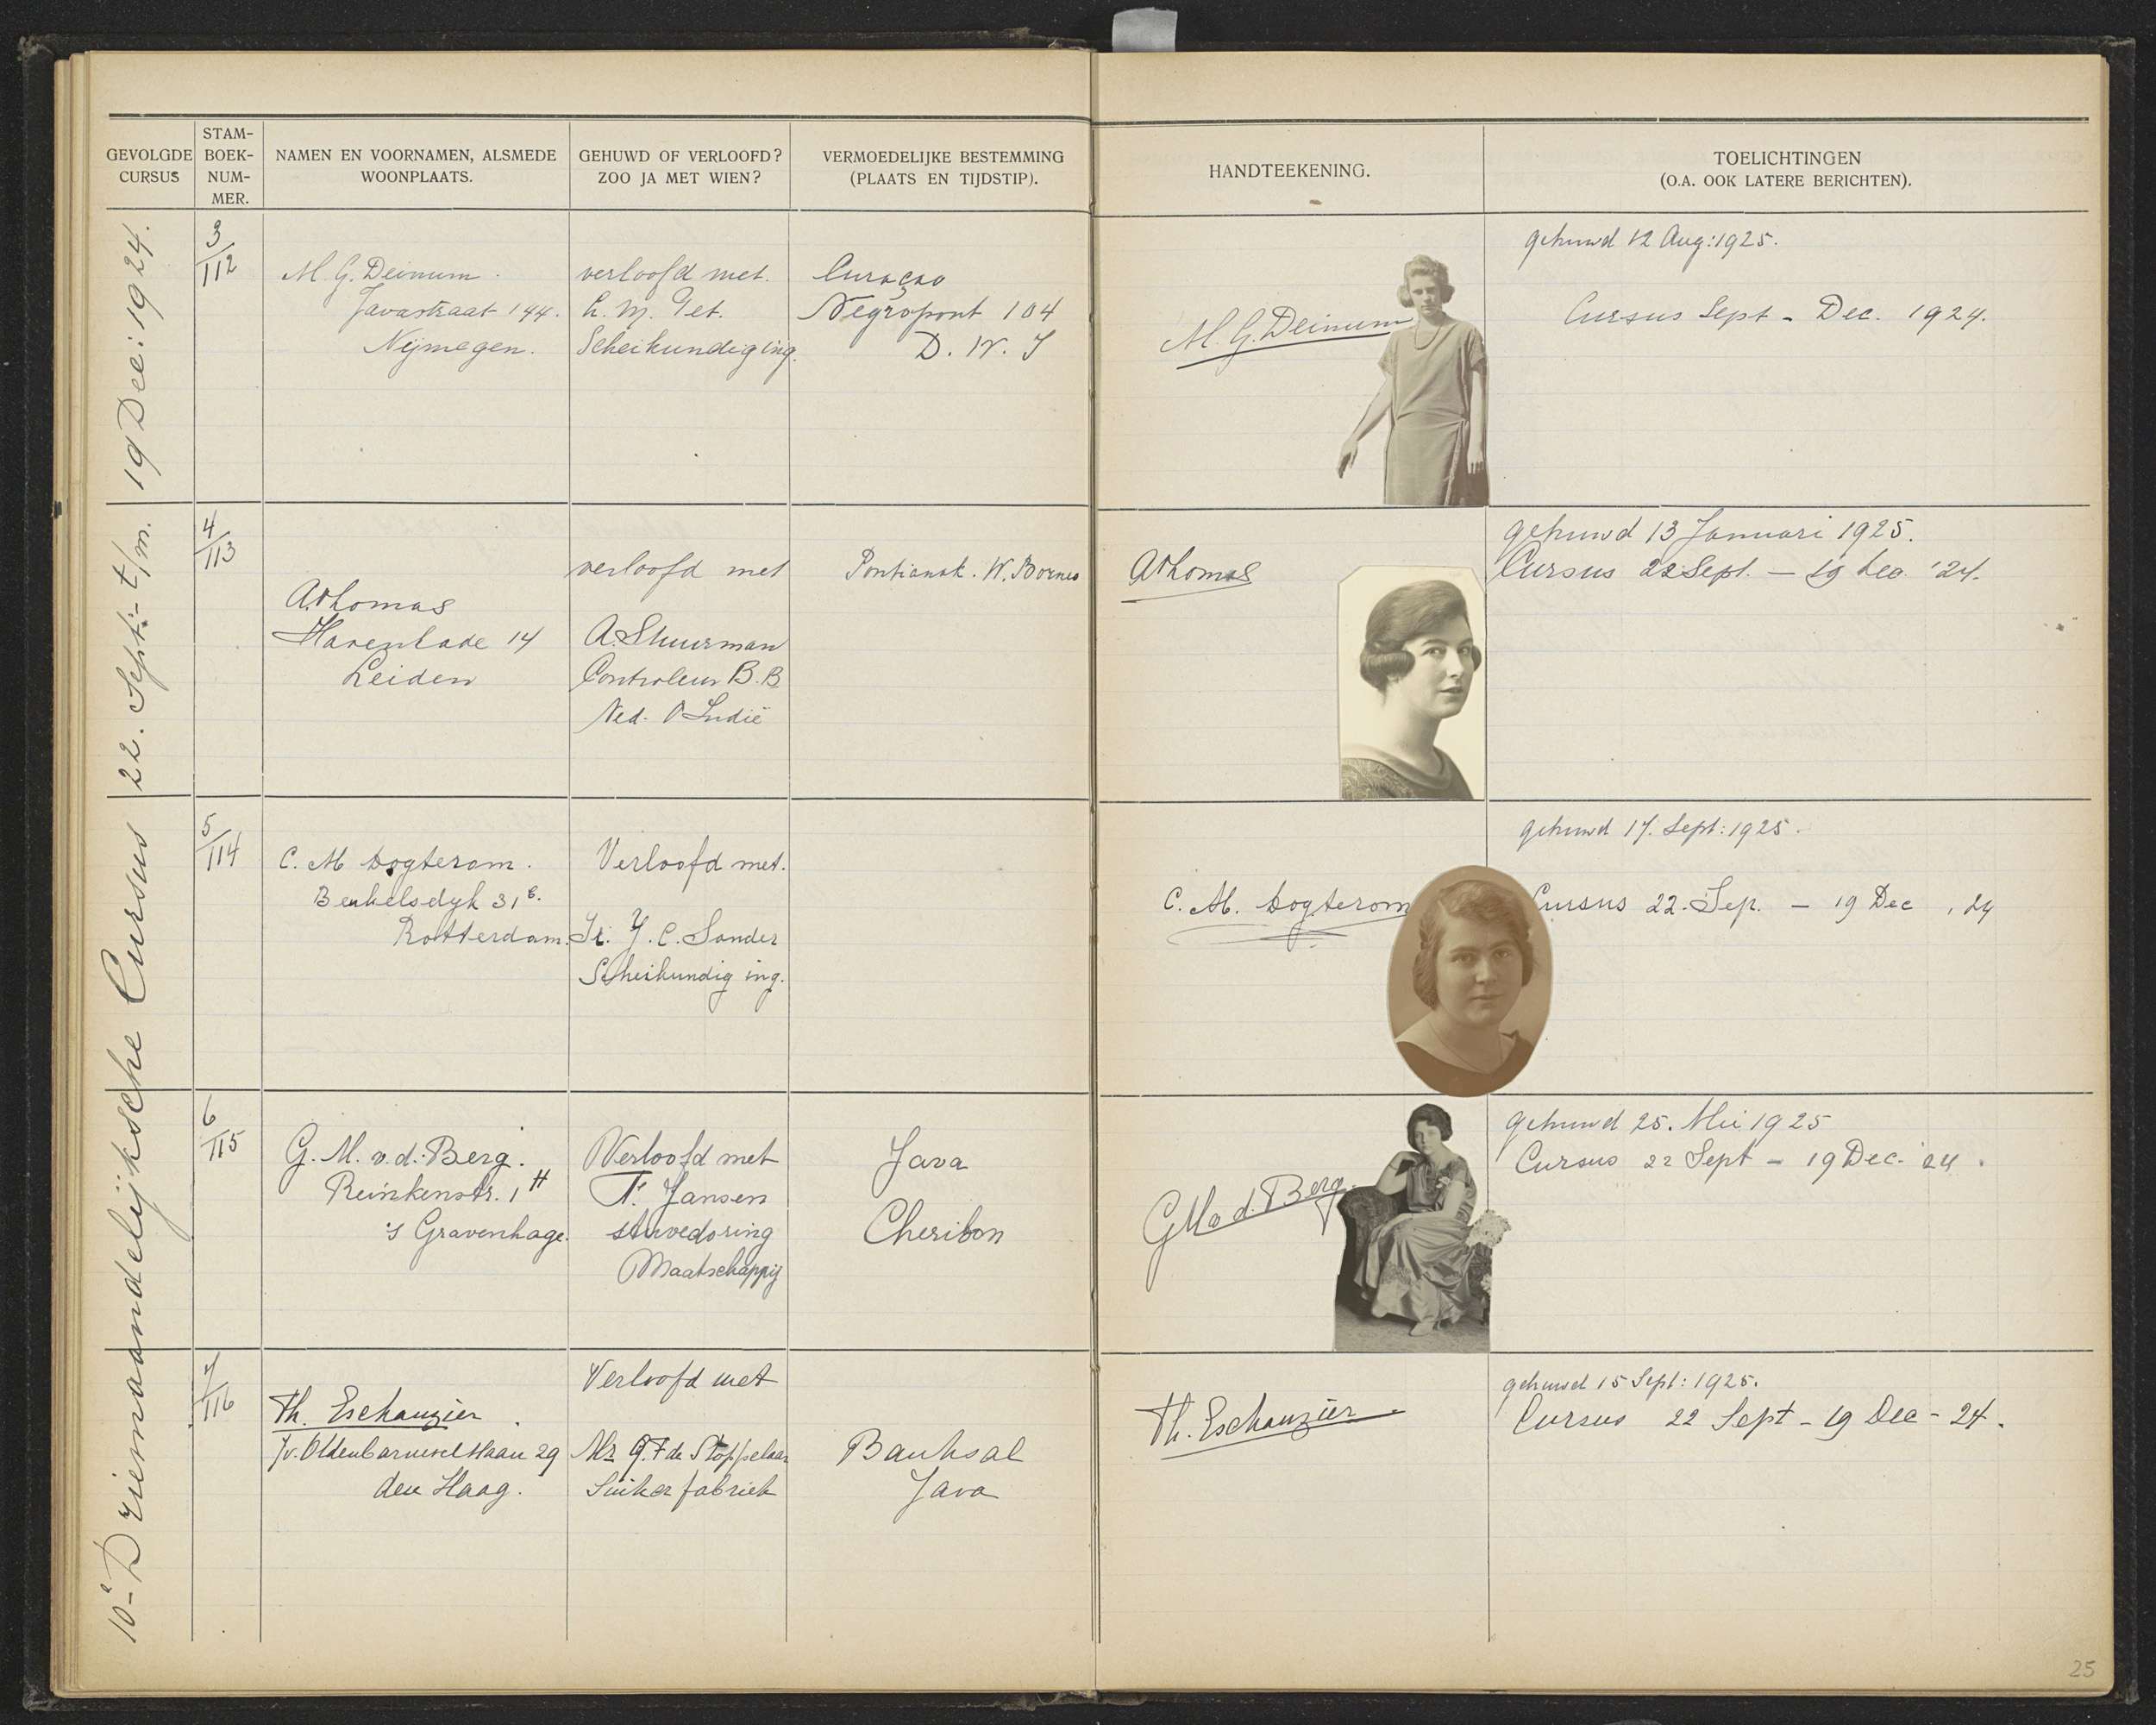 GEVOLGDE CURSUS
STAM-BOEK-NUM-MER.
NAMEN EN VOORNAMEN, ALSMEDE WOONPLAATS.
GEHUWD OF VERLOOFD? ZOO JA MET WIEN?
VERMOEDELIJKE BESTEMMING (PLAATS EN TIJDSTIP).
HANDTEEKENING.
TOELICHTINGEN (O.A. OOK LATERE BERICHTEN).
10e Driemaandelijksche Cursus 22. Sept: t/m. 19 Dec: 1924.
3/112
M. G. Deinum.
Javastraat 144.
Nijmegen.
verloofd met.
Scheikundig ing.
Curaçao
Negropont 104
D. W. I
M. G. Deinum
gehuwd 12 Aug: 1925.
Cursus Sept - Dec. 1924.
4/113
A. Thomas
Leiden
verloofd met
A. Stuurman
Controleur B.B
Ned. O Indië
Pontianak. W. Borneo
A Thomas
gehuwd 13 Januari 1925.
Cursus 22 Sept. - 19 Dec. '24.
5/114
C. M Dogterom.
Beukelsdyk 31 B.
Rotterdam.
Verloofd met.
Ir. J. C. Sander
Scheikundig ing.
C. M. Dogterom
gehuwd 17. Sept: 1925.
Cursus 22. Sep. - 19 Dec , 24
6/115
G. M. v. d. Berg.
Reinkenstr. 1 H
's Gravenhage.
Verloofd met
F. Jansen
Maatschappij
Java
Cheribon
G M v d. Berg.
gehuwd 25. Mei 1925
Cursus 22 Sept - 19 Dec. 24.
7/116
Th. Eschauzier.
J. v. Oldenbarneveltlaan 29
den Haag.
Verloofd met
Mr. G. F de Stoppelaar
Suikerfabriek
Banksal
Java
Th. Eschauzier.
gehuwd 15 Sept: 1925.
Cursus 22 Sept - 19 Dec - 24.
25